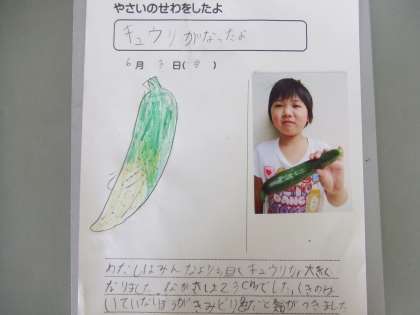 やさいのせわをしたよ
キュウリがなったよ
6月 日( )
わたしはみんなよりも早くキュウリが大きく
なりました。ながさは23cmでした。くきの
ていないほうがきみどり色だと気がつきました